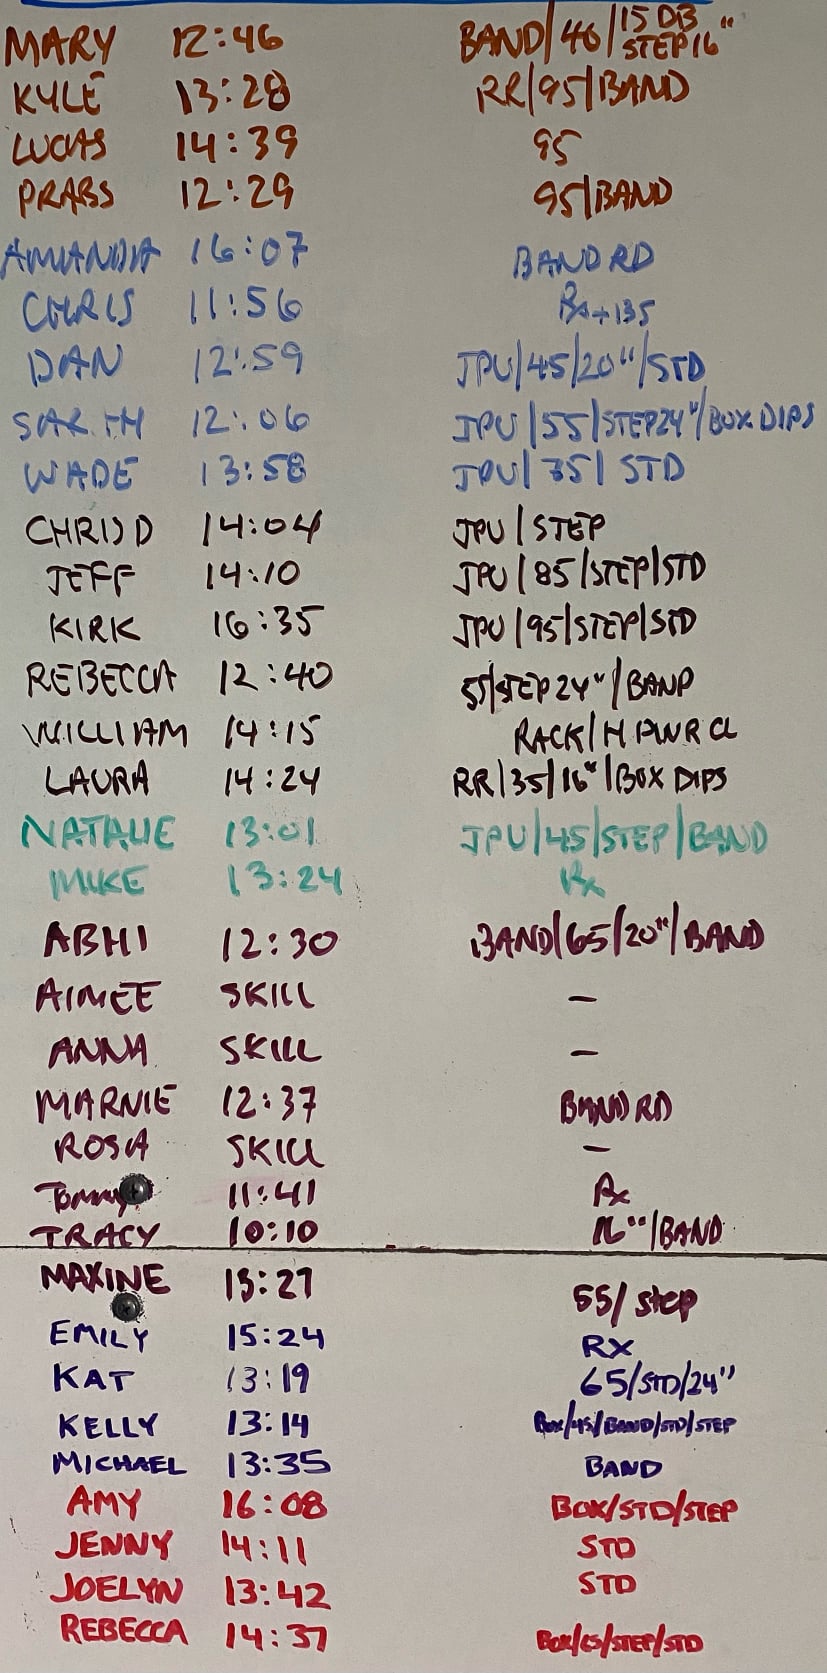 MARY 12:46 BAND/40/15 DB STEP 16"
KYLE 13:28 RR/95/BAND
LUCAS 14:39 95
PRABS 12:29 95/BAND
AMANDA 16:07 BAND RD
CHRIS 11:56 Rx+135
DAN 12:59 JPU/45/20"/STD
12:06 JPU/55/STEP24"/BOX DIPS
WADE 13:58 JPU/35/STD
CHRIS D 14:04 JPU/STEP
JEFF 14:10 JPU/85/STEP/STD
KIRK 16:35 JPU/95/STEP/STD
REBECCA 12:40 55/STEP 24"/BAND
WILLIAM 14:15 RACK/H PWR CL
LAURA 14:24 RR/35/16"/BOX DIPS
NATALIE 13:01 JPU/45/STEP/BAND
MIKE 13:24 Rx
ABHI 12:30 BAND/65/20"/BAND
AIMEE SKILL –
ANNA SKILL –
MARNIE 12:37 BAND RD
ROSA SKILL –
Tommy 11:41 Rx
TRACY 10:10 16"/BAND
MAXINE 13:27 55/step
EMILY 15:24 RX
KAT 13:19 65/STD/24"
KELLY 13:14 BOX/45/BAND/STD/STEP
MICHAEL 13:35 BAND
AMY 16:08 BOX/STD/STEP
JENNY 14:11 STD
JOELYN 13:42 STD
REBECCA 14:37 BOX/65/STEP/STD